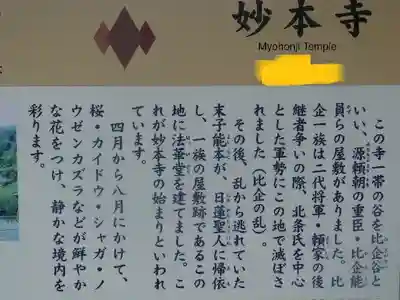 妙本寺
Myohonji Temple
この寺一帯の谷を比企谷と
いい、源頼朝の重臣・比企能
員らの屋敷がありました。比
企一族は二代将軍・頼家の後
継者争いの際、北条氏を中心
とした軍勢にこの地で滅ぼさ
れました(比企の乱)。
その後、乱から逃れていた
末子能本が、日蓮聖人に帰依
し、一族の屋敷跡であるこの
地に法華堂を建てました。こ
れが妙本寺の始まりといわれ
ています。
四月から八月にかけて、
桜・カイドウ・シャガ・ノ
ウゼンカズラなどが鮮やか
な花をつけ、静かな境内を
彩ります。